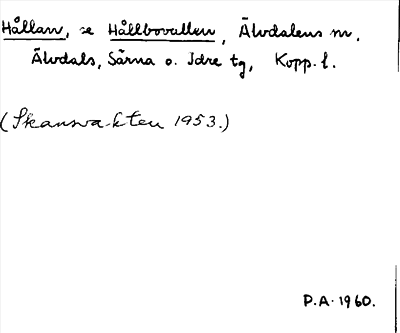 Hållan, se Hållbovallen, Älvdalens sn.
Älvdals, Särna o. Idre tg, Kopp. l.
(Skansvakten 1953.)
P.A. 1960.